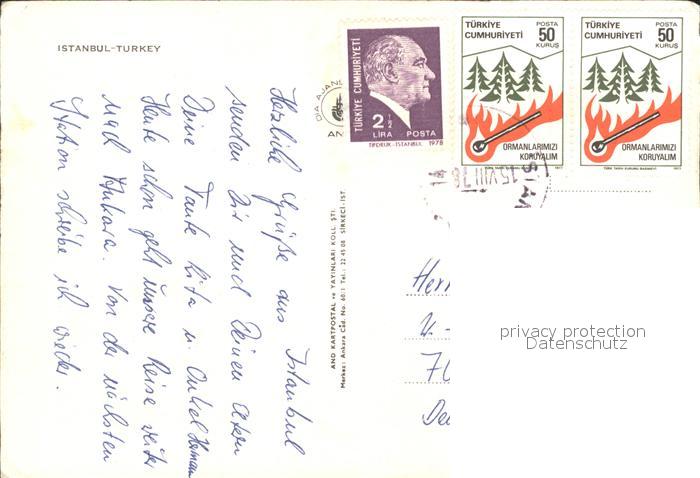 ISTANBUL-TURKEY
Herzliche Grüße aus Istanbul
senden Dir und Deinen Eltern
Deine Tante Rita u. Onkel Herman
Heute schon geht unsere Reise weiter
nach Ankara. Von der nächsten
Station schreibe ich wieder.
AND KARTPOSTAL ve YAYINLARI KOLL. ŞTİ.
Merkez: Ankara Cad. No. 60/1 Tel.: 22 45 08 SİRKECİ-İST.
TÜRKİYE CUMHURİYETİ
2 1/2
LİRA POSTA
TİFDRUK-İSTANBUL 1978
TÜRKİYE
CUMHURİYETİ
POSTA
50
KURUŞ
ORMANLARIMIZI
KORUYALIM
1977
TÜRKİYE
CUMHURİYETİ
POSTA
50
KURUŞ
ORMANLARIMIZI
KORUYALIM
1977
15 VIII 78
Herr
70
privacy protection
Datenschutz